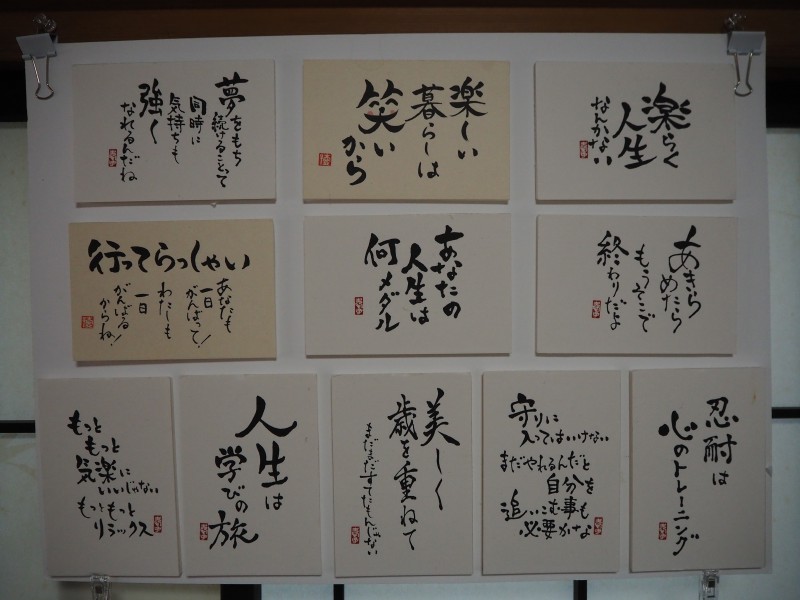 夢をもち
続けることって
同時に
気持ちも
強く
なれるんだね
楽しい
暮らしは
笑い
から
楽らく
人生
なんかない
行ってらっしゃい
あなたも
一日
がんばって!
わたしも
一日
がんばる
からね!
あなたの
人生は
何メダル
あきら
めたら
もうそこで
終わりだよ
もっと
もっと
気楽に
いいじゃない
もっともっと
リラックス
人生は
学びの
旅
美しく
歳を重ねて
まだまだすてたもんじゃない
守りに
入ってはいけない
まだやれるんだと
自分を
追いこむ事も
必要かな
忍耐は
心のトレーニング